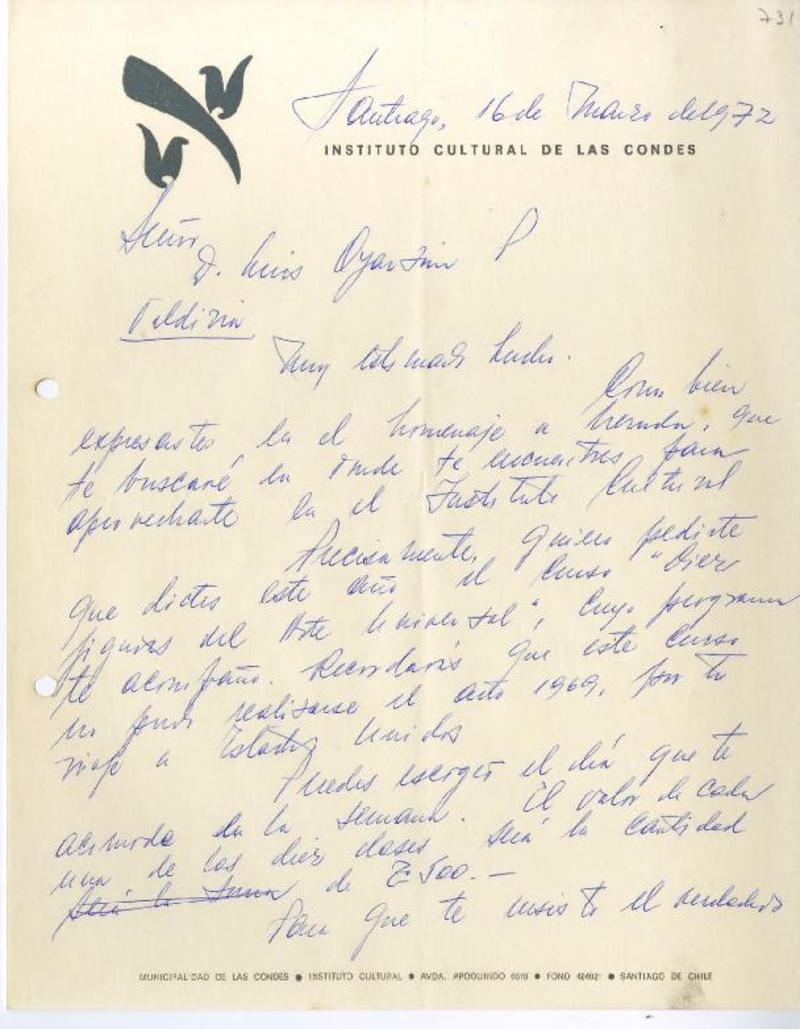 731
Santiago, 16 de Marzo de 1972
INSTITUTO CULTURAL DE LAS CONDES
Señor
D. Luis Oyarzún P
Valdivia
Muy estimado Lucho.
Como bien
expresastes en el homenaje a Neruda, que
te buscaré en donde te encuentres para
aprovecharte en el Instituto Cultural
Precisamente, quiero pedirte
que dictes este año el curso "Diez
figuras del Arte Universal", cuyo programa
te acompaño. Recordarás que este curso
no pudo realizarse el año 1969, por tu
viaje a Estados Unidos
Puedes escoger el día que te
acomode en la semana. El valor de cada
una de las diez clases será la cantidad
será la suma de E° 500.-
Para que te el verdadero
MUNICIPALIDAD DE LAS CONDES ● INSTITUTO CULTURAL ● AVDA. APOQUINDO 6570 ● FONO 484021 ● SANTIAGO DE CHILE